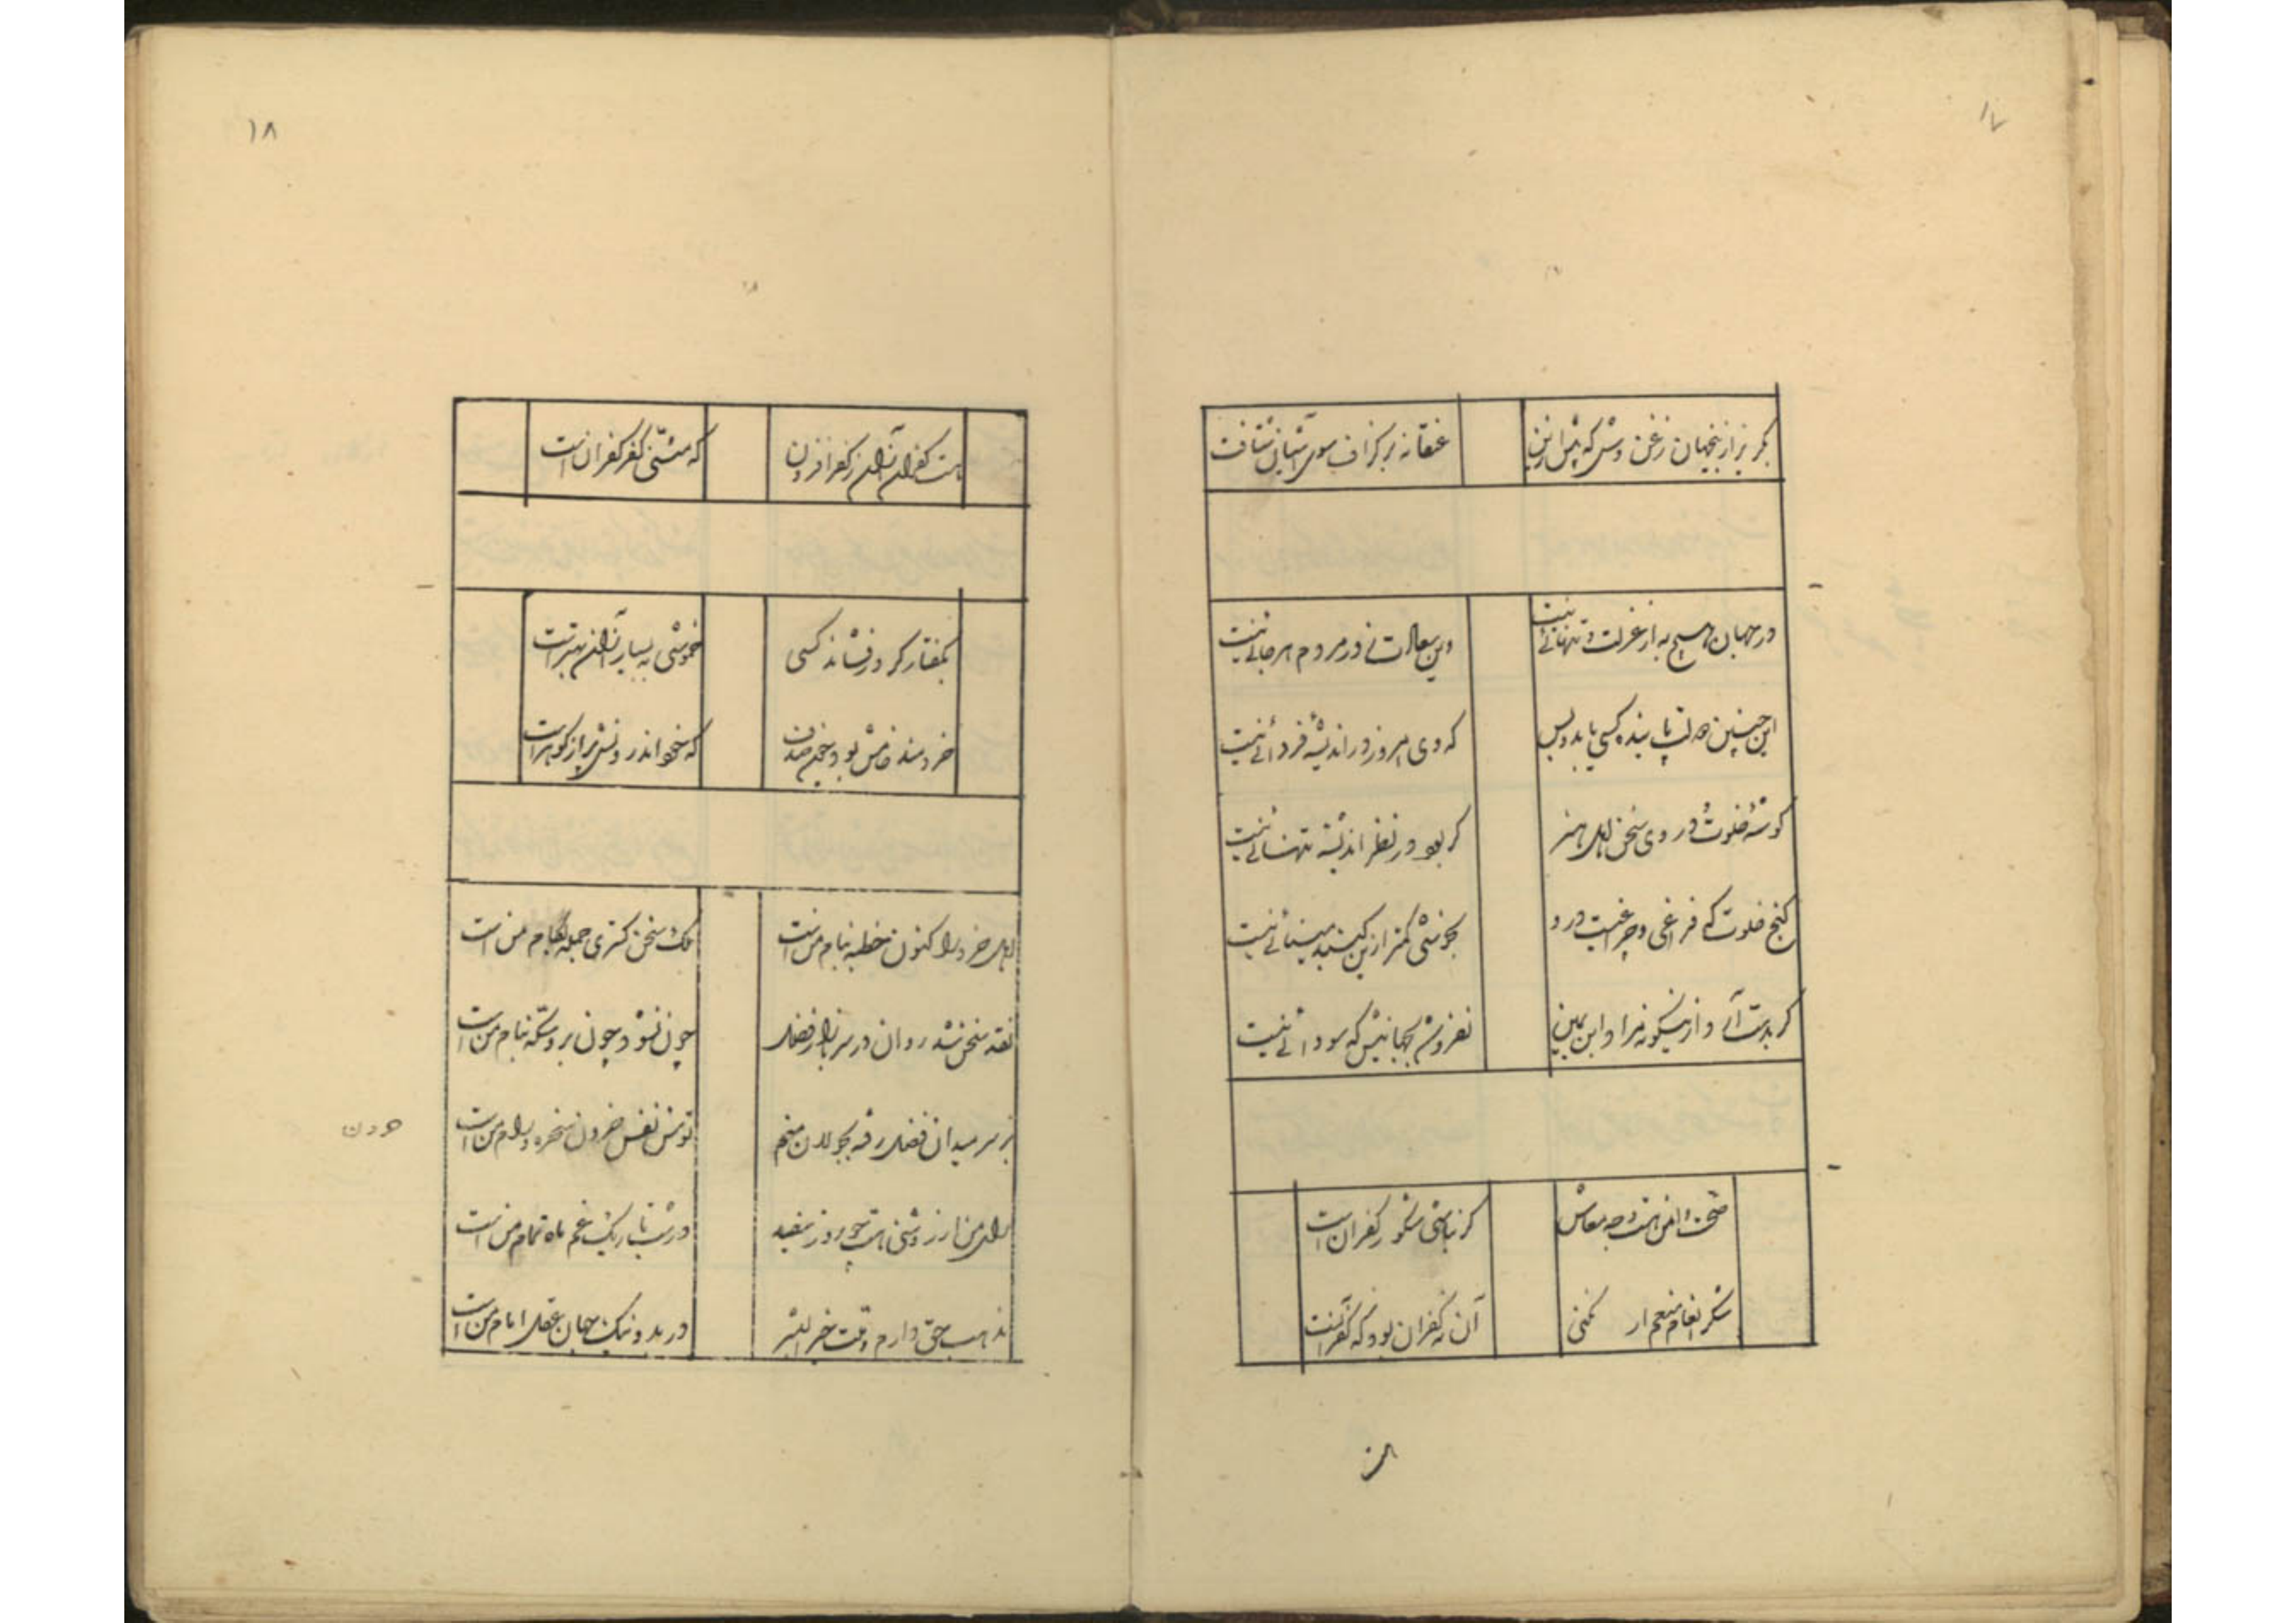 ۱۷
بگریز ازینجهان زغن وش که پیش ازین
عنقا نه بر گزاف سوی آشیان شتافت
در جهان هیچ به از عزلت و تنهائی نیست
وین سعادت ز در مردم هر جائی نیست
این چنین دولت پاینده کسی یابد و بس
که وی امروز در اندیشه فردائی نیست
گوشه خلوت و در وی سخن اهل هنر
گر بود در نظر اندیشه تنهائی نیست
کنج خلوت که فراغی و چراغیست درو
بخوشی کمتر ازین گنبد مینائی نیست
گر بدست آید ازینگونه مرا و ابن یمین
نفروشم بجهانیش که سودائی نیست
صحت و امن هست و وجه معاش
گر نباشی شکور کفران است
شکر انعام منعم ار نکنی
آن نه کفران بود که کفر آنست
۱۸
هست کفران آن ز کفر افزون
که مثنی کفر کفران است
بگفتار گر در فشاند کسی
خموشی به بسیار از آن بهتر است
خردمند خامش بود چون صدف
که خود اندرونش پر از گوهر است
اهل خرد را کنون خطبه بنام من است
ملک سخن گستری جمله بکام من است
نقد سخن شد روان در سر بازار فضل
چون نشود چون برو سکه بنام من است
بر سر میدان فضل رفته بجولان منم
توسن نفس حرون سخره و رام من است
حرون
رای من از روشنی هست چو روز سفید
در شب تاریک غم ماه تمام من است
مذهب حق دارم و ملت خیر البشر
در بد و نیک جهان عقل امام من است